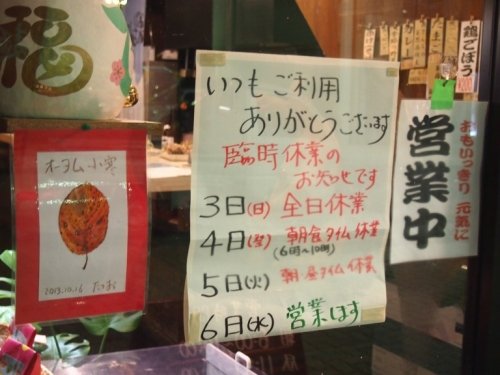 福
いつもご利用
ありがとうございます
臨時休業の
お知らせです
3日(日) 全日休業
4日(月) 朝食タイム休業
(6時～10時)
5日(火) 朝・昼タイム休業
6日(水) 営業します
ホヤム小寒
2013.10.16 たつお
鶏ごぼう
おもいっきり元気に
営業中